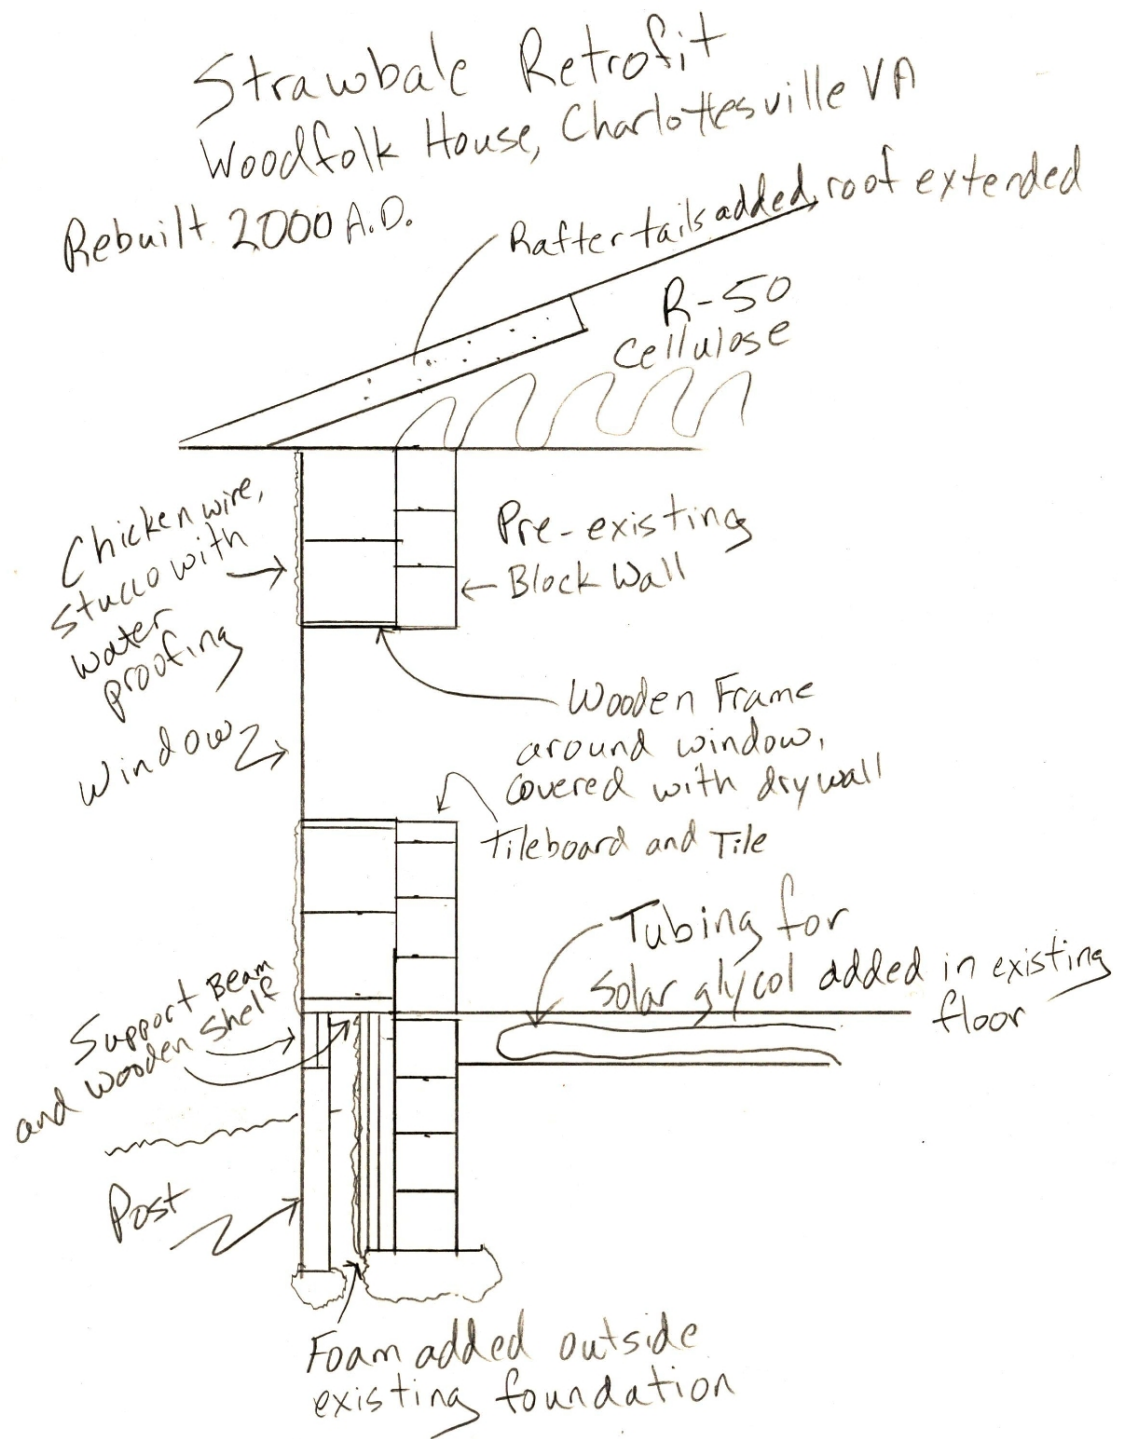 Strawbale Retrofit
Woodfolk House, Charlottesville VA
Rebuilt 2000 A.D.
Rafter tails added, roof extended
R-50
Cellulose
Chicken wire,
stucco with
water
proofing
Pre-existing
Block Wall
Window
Wooden Frame
around window,
covered with drywall
Tileboard and Tile
Tubing for
Solar glycol added in existing
floor
Support Beam
and wooden shelf
Post
Foam added outside
existing foundation